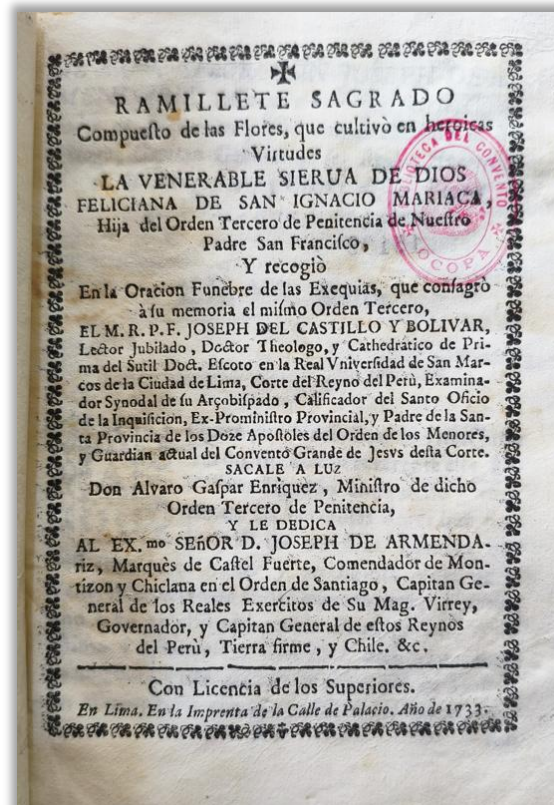 RAMILLETE SAGRADO
Compuesto de las Flores, que cultivò en heroicas
Virtudes
LA VENERABLE SIERUA DE DIOS
FELICIANA DE SAN IGNACIO MARIACA,
Hija del Orden Tercero de Penitencia de Nuestro
Padre San Francisco,
Y recogiò
En la Oracion Funebre de las Exequias, que consagrò
à su memoria el mismo Orden Tercero,
EL M. R. P. F. JOSEPH DEL CASTILLO Y BOLIVAR,
Lector Jubilado, Doctor Theologo, y Cathedratico de Pri-
ma del Sutil Doct. Escoto en la Real Vniversidad de San Mar-
cos de la Ciudad de Lima, Corte del Reyno del Perù, Examina-
dor Synodal de su Arçobispado, Calificador del Santo Oficio
de la Inquisicion, Ex-Prominístro Provincial, y Padre de la San-
ta Provincia de los Doze Apostoles del Orden de los Menores,
y Guardian actual del Convento Grande de Jesvs desta Corte.
SACALE A LUZ
Don Alvaro Gaspar Enriquez, Ministro de dicho
Orden Tercero de Penitencia,
Y LE DEDICA
AL EX.mo SEñOR D. JOSEPH DE ARMENDA-
riz, Marquès de Castel Fuerte, Comendador de Mon-
tizon y Chiclana en el Orden de Santiago, Capitan Ge-
neral de los Reales Exercitos de Su Mag. Virrey,
Governador, y Capitan General de estos Reynos
del Perù, Tierra firme, y Chile. &c.
Con Licencia de los Superiores.
En Lima. En la Imprenta de la Calle de Palacio. Año de 1733.
BIBLIOTECA DEL CONVENTO
OCOPA